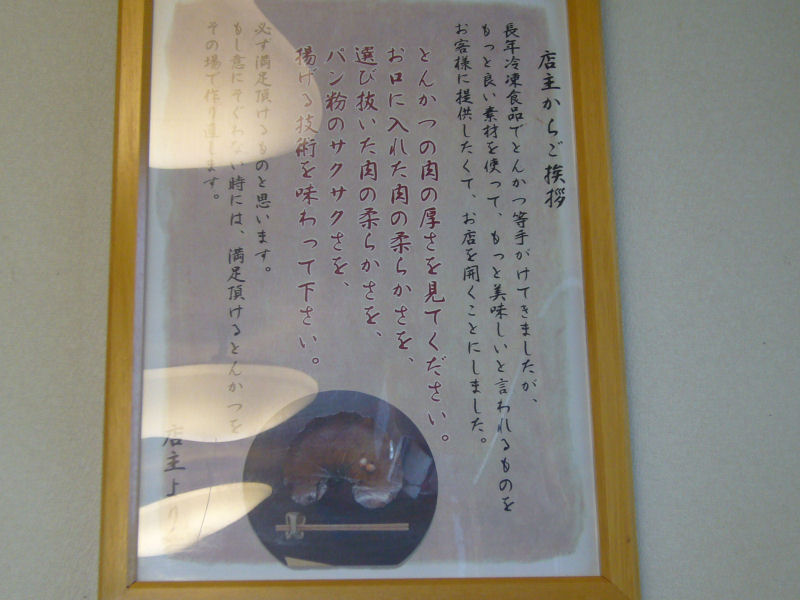 店主からご挨拶
長年冷凍食品でとんかつ等手がけてきましたが、
もっと良い素材を使って、もっと美味しいと言われるものを
お客様に提供したくて、お店を開くことにしました。
とんかつの肉の厚さを見てください。
お口に入れた肉の柔らかさを、
選び抜いた肉の柔らかさを、
パン粉のサクサクさを、
揚げる技術を味わって下さい。
必ず満足頂けるものと思います。
もし意にそぐわない時には、満足頂けるとんかつを
その場で作り直します。
店主より